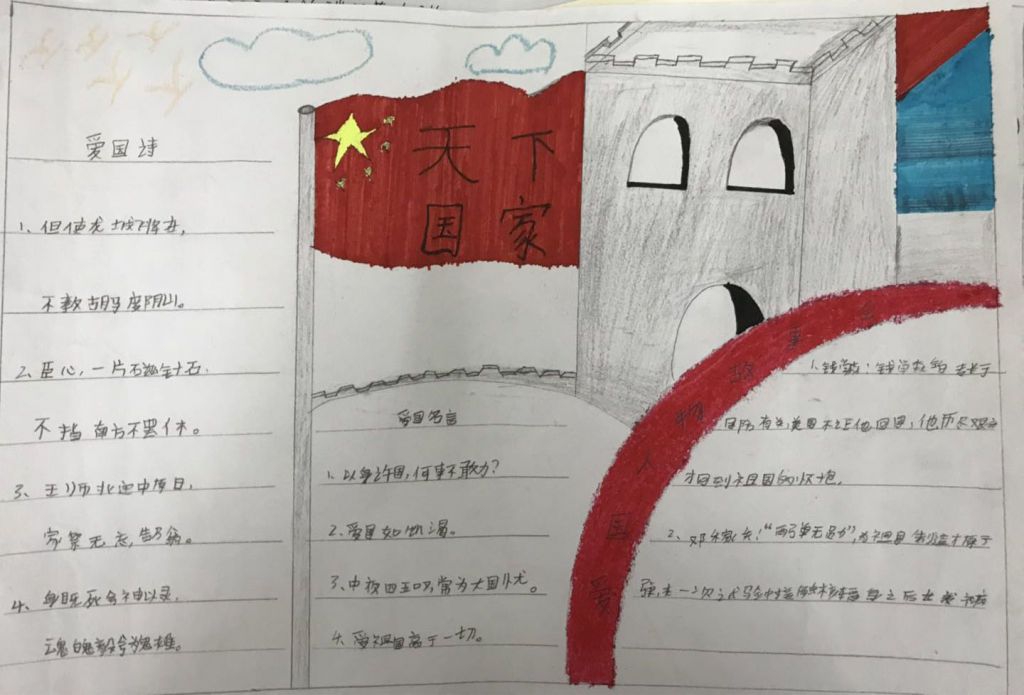 爱国诗
1、但使龙城飞将在，
不教胡马度阴山。
2、臣心一片磁针石，
不指南方不罢休。
3、王师北定中原日，
家祭无忘告乃翁。
4、身既死兮神以灵，
魂魄毅兮鬼雄。
天下
国家
爱国名言
1、以身许国，何事不敢为？
2、爱国如饥渴。
3、中夜四五叹，常为大国忧。
4、爱祖国高于一切。
爱国人物故事
1、钱学森：钱学森
国防有关，美国不让他回国，他历尽艰
才回到祖国的怀抱。
2、邓稼先："两弹元勋"，为祖国